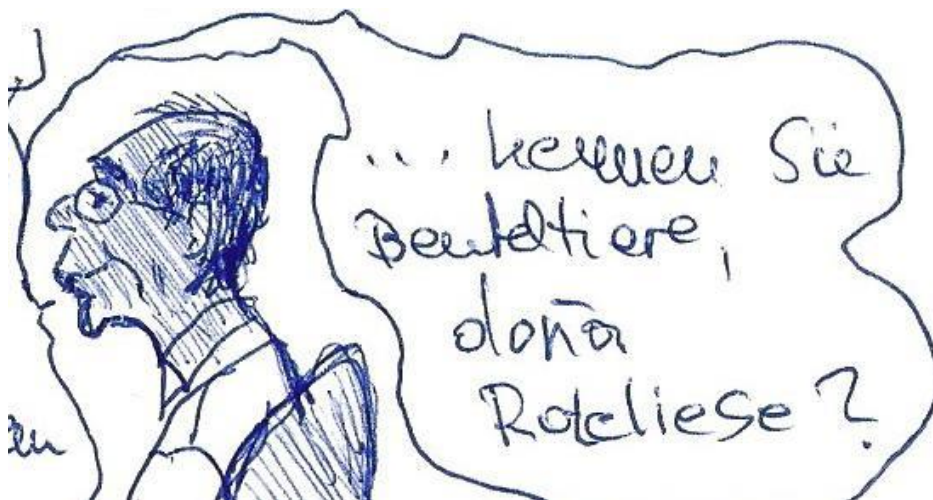 ... kennen Sie
Beuteltiere,
doña
Rotcliese?